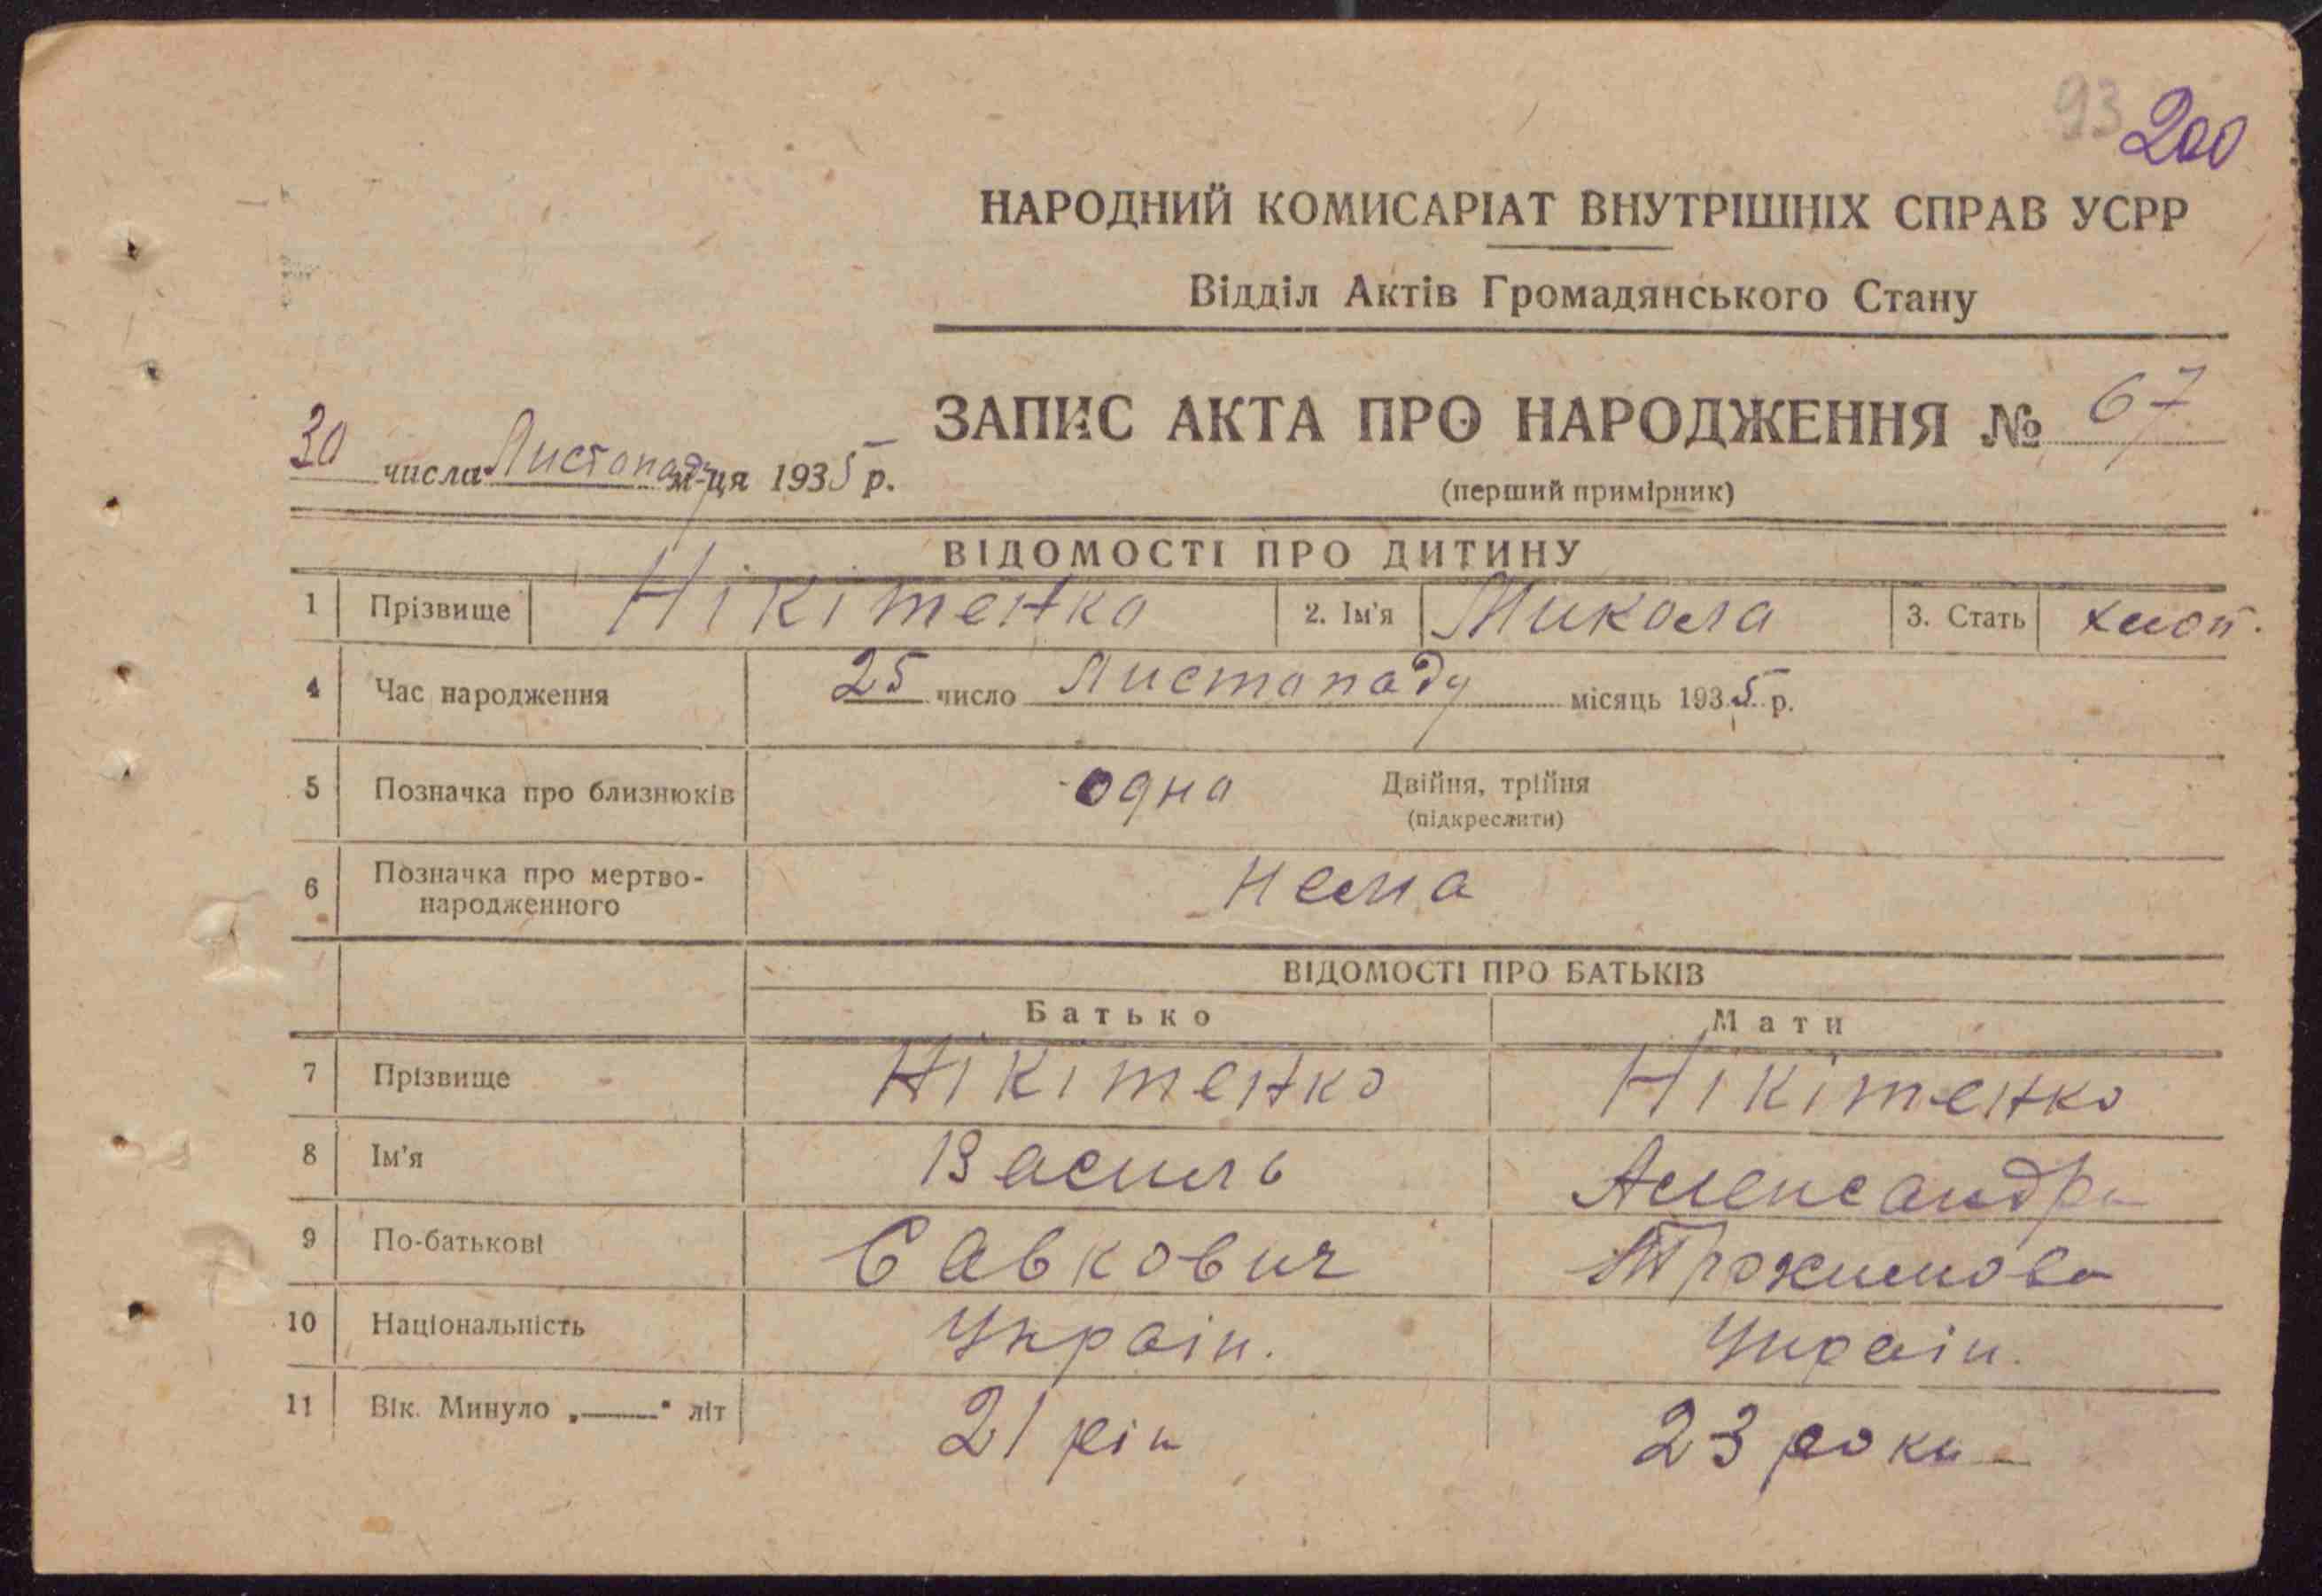 93 200
НАРОДНИЙ КОМИСАРІАТ ВНУТРІШНІХ СПРАВ УСРР
Відділ Актів Громадянського Стану
ЗАПИС АКТА ПРО НАРОДЖЕННЯ № 67
30 числа Листопаду м-ця 1935 р.
(перший примірник)
ВІДОМОСТІ ПРО ДИТИНУ
1 Прізвище Нікітенко 2. Ім'я Микола 3. Стать хлоп.
4 Час народження 25 число Листопаду місяць 1935 р.
5 Позначка про близнюків одна Двійня, трійня
(підкреслити)
6 Позначка про мертво-
народженного нема
ВІДОМОСТІ ПРО БАТЬКІВ
Батько Мати
7 Прізвище Нікітенко Нікітенко
8 Ім'я Василь Александра
9 По-батькові Савкович
10 Національність Украін. Украін.
11 Вік. Минуло „——" літ 21 рік 23 роки